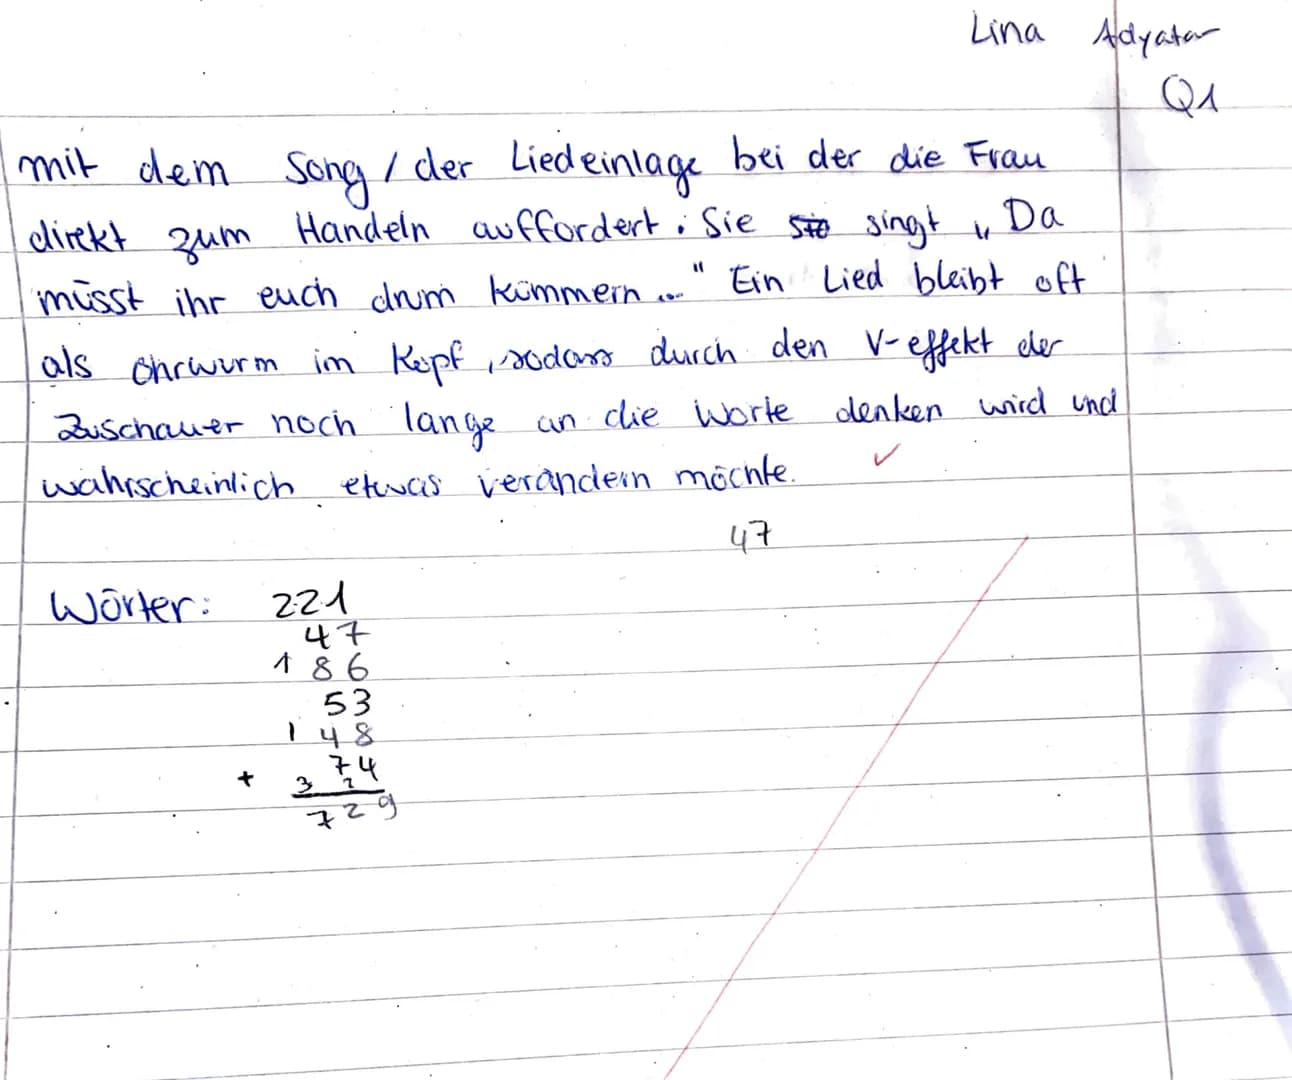 Lina Adyatar
Q1
mit dem Song / der Liedeinlage bei der die Frau
direkt zum Handeln auffordert. Sie singt „Da
müsst ihr euch drum kümmern ..." Ein Lied bleibt oft
als Ohrwurm im Kopf, sodass durch den V-effekt der
Zuschauer noch lange an die Worte denken wird und
wahrscheinlich etwas verändern möchte.
47
Wörter: 221
47
186
53
148
+ 74
3 2
729